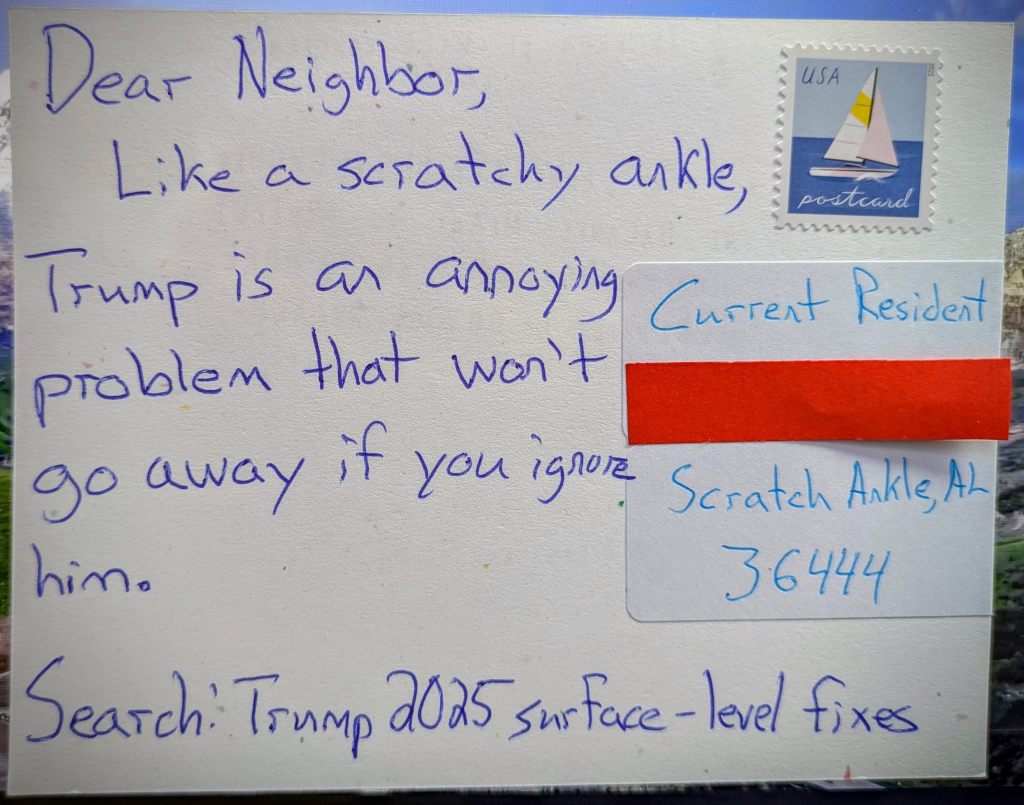 Dear Neighbor,
Like a scratchy ankle,
Trump is an annoying
problem that won't
go away if you ignore
him.
Search: Trump 2025 surface-level fixes
USA
2023
postcard
Current Resident
Scratch Ankle, AL
36444